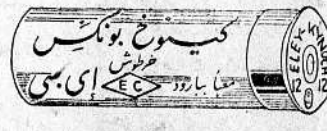 كينوخ بونكس
خرطوش
معبأ ببارود <EC> إي سي
ELEY-KYNOCH
12 12